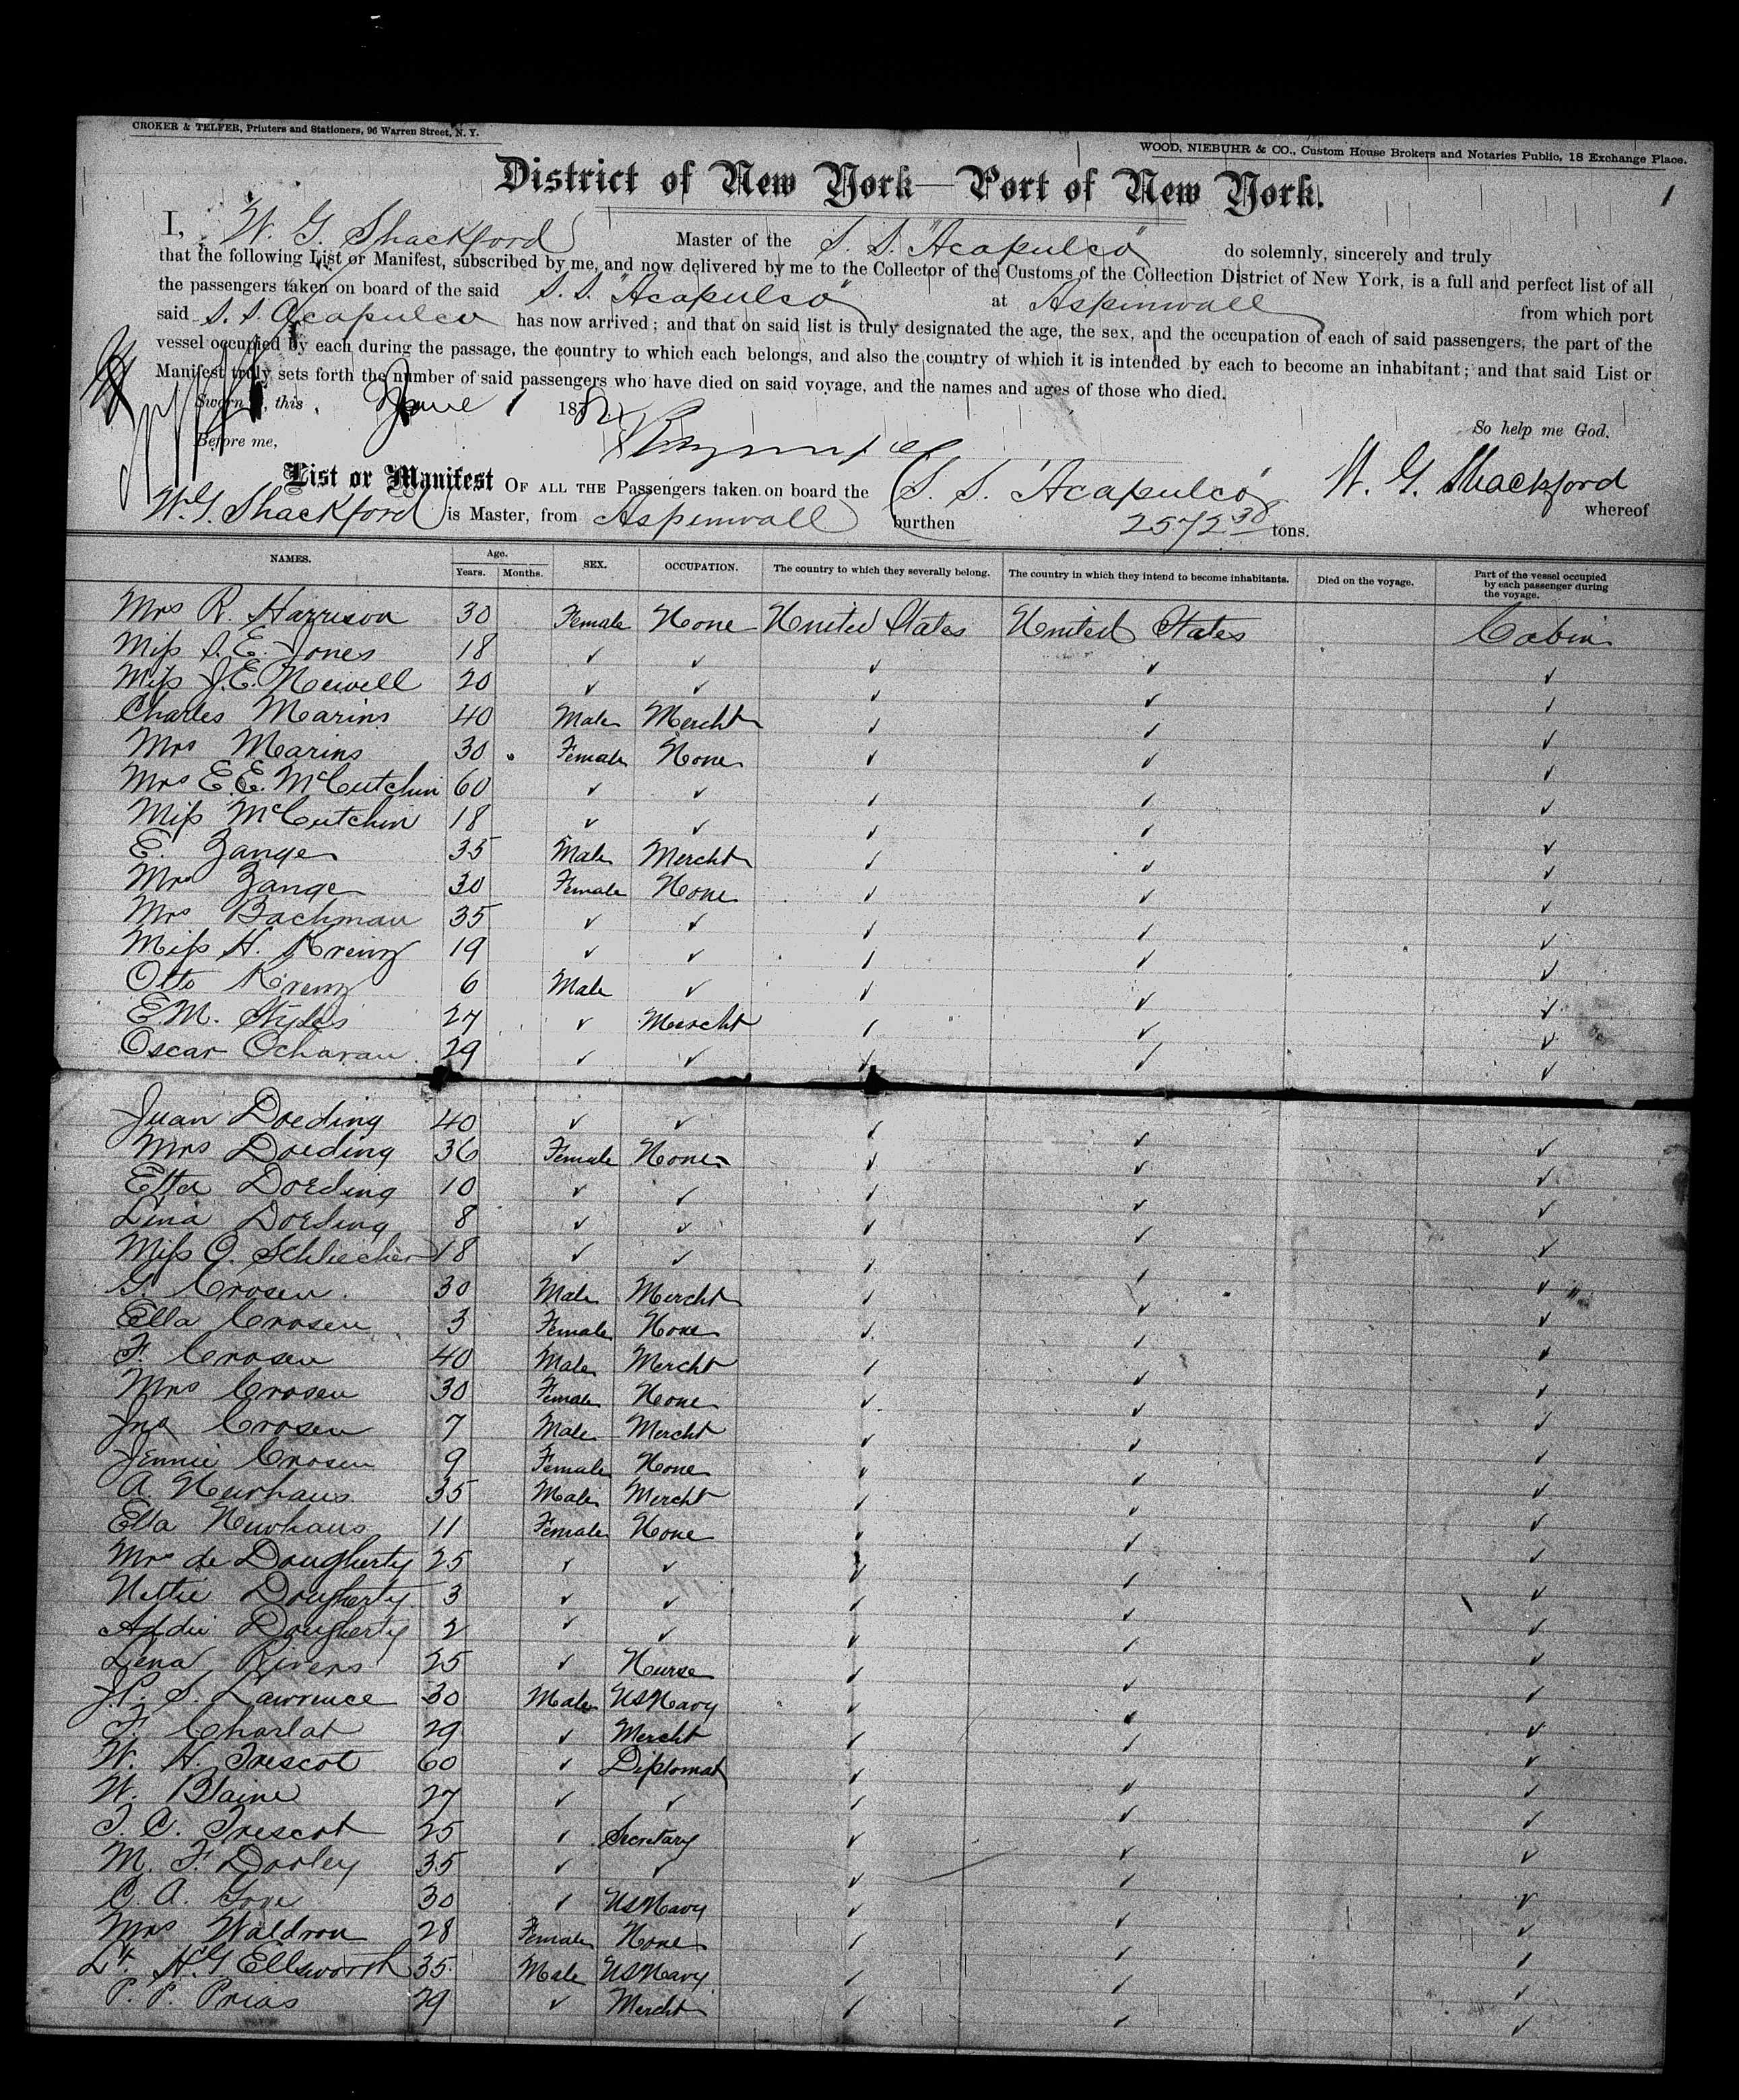 CROKER & TELFER, Printers and Stationers, 96 Warren Street, N. Y.
WOOD, NIEBUHR & CO., Custom House Brokers and Notaries Public, 18 Exchange Place.
District of New York—Port of New York.
1
I, W. G. Shackford Master of the S. S. "Acapulco" do solemnly, sincerely and truly
that the following List or Manifest, subscribed by me, and now delivered by me to the Collector of the Customs of the Collection District of New York, is a full and perfect list of all
the passengers taken on board of the said S. S. "Acapulco" at Aspinwall from which port
said S. S. Acapulco has now arrived; and that on said list is truly designated the age, the sex, and the occupation of each of said passengers, the part of the
vessel occupied by each during the passage, the country to which each belongs, and also the country of which it is intended by each to become an inhabitant; and that said List or
Manifest truly sets forth the number of said passengers who have died on said voyage, and the names and ages of those who died.
Sworn to, this June 1 1882
So help me God.
Before me,
W. G. Shackford
List or Manifest OF ALL THE Passengers taken on board the S. S. "Acapulco" whereof
W. G. Shackford is Master, from Aspinwall burthen 2572 38 tons.
NAMES. Age. Years. Months. SEX. OCCUPATION. The country to which they severally belong. The country in which they intend to become inhabitants. Died on the voyage. Part of the vessel occupied by each passenger during the voyage.
Mrs R. Harrison 30 Female None United States United States Cabin
Miss S. E. Jones 18 ✓ ✓ ✓ ✓ ✓
Miss J. E. Newell 20 ✓ ✓ ✓ ✓ ✓
Charles Marins 40 Male Mercht ✓ ✓ ✓
Mrs Marins 30 Female None ✓ ✓ ✓
Mrs E. E. McCutchin 60 ✓ ✓ ✓ ✓ ✓
Miss McCutchin 18 ✓ ✓ ✓ ✓ ✓
E. Zange 35 Male Mercht ✓ ✓ ✓
Mrs Zange 30 Female None ✓ ✓ ✓
Mrs Bachman 35 ✓ ✓ ✓ ✓ ✓
Miss H. Krenz 19 ✓ ✓ ✓ ✓ ✓
Otto Krenz 6 Male ✓ ✓ ✓ ✓
E. M. Styles 27 ✓ Mercht ✓ ✓ ✓
Oscar Ocharan 29 ✓ ✓ ✓ ✓ ✓
Juan Doeding 40 ✓ ✓ ✓ ✓ ✓
Mrs Doeding 36 Female None ✓ ✓ ✓
Etta Doeding 10 ✓ ✓ ✓ ✓ ✓
Lina Doeding 8 ✓ ✓ ✓ ✓ ✓
Miss O. Schliecher 18 ✓ ✓ ✓ ✓ ✓
G. Crosen 30 Male Mercht ✓ ✓ ✓
Ella Crosen 3 Female None ✓ ✓ ✓
F. Crosen 40 Male Mercht ✓ ✓ ✓
Mrs Crosen 30 Female None ✓ ✓ ✓
Jno Crosen 7 Male Mercht ✓ ✓ ✓
Jennie Crosen 9 Female None ✓ ✓ ✓
A. Newhaus 35 Male Mercht ✓ ✓ ✓
Ella Newhaus 11 Female None ✓ ✓ ✓
Mrs de Dougherty 25 ✓ ✓ ✓ ✓ ✓
Nettie Dougherty 3 ✓ ✓ ✓ ✓ ✓
Addie Dougherty 2 ✓ ✓ ✓ ✓ ✓
Lena Rivers 25 ✓ Nurse ✓ ✓ ✓
J. P. S. Lawrence 30 Male US Navy ✓ ✓ ✓
F. Charlat 29 ✓ Mercht ✓ ✓ ✓
W. H. Trescot 60 ✓ Diplomat ✓ ✓ ✓
W. Blaine 27 ✓ ✓ ✓ ✓ ✓
T. C. Trescot 25 ✓ Secretary ✓ ✓ ✓
M. F. Dooley 35 ✓ ✓ ✓ ✓ ✓
C. A. Gove 30 ✓ US Navy ✓ ✓ ✓
Mrs Waldron 28 Female None ✓ ✓ ✓
Lt. H. G. Ellsworth 35 Male US Navy ✓ ✓ ✓
P. P. Prias 29 ✓ Mercht ✓ ✓ ✓